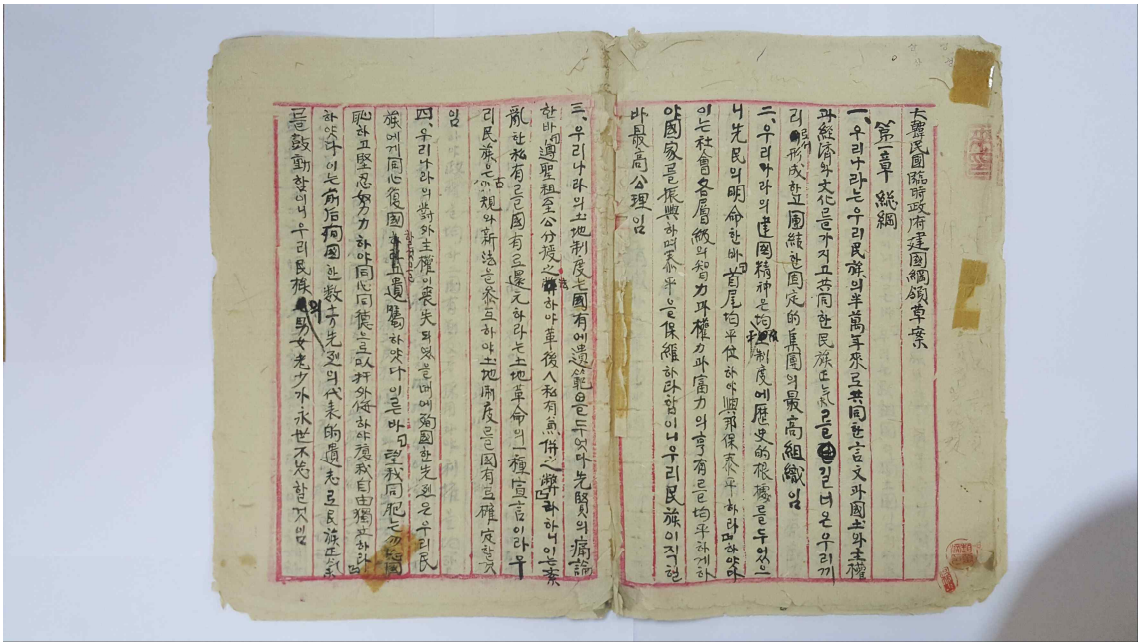 大韓民國臨時政府建國綱領草案
第一章 総綱
一、우리나라는 우리民族의 半萬年來로 共同한 言文과 國土와 主權
과 經濟와 文化를 가지고 共同한 民族正气를 길너온 우리끼
리 形成하고 團結한 固定的 集團의 最高組織임
二、우리나라의 建國精神은 三均制度에 歷史的 根據를 두었으
니 先民의 明命한바 「首尾均平位하야 興邦保泰平하라」 하얏다
이는 社會各層級의 智力과 權力과 富力의 享有를 均平하게 하
야 國家를 振興하며 泰平을 保維하라 함이니 우리民族이 직힐
바 最高公理임
三、우리나라의 土地制度는 國有에 遺範을 두엇다 先賢의 痛論
한바 「遵聖祖至公分授之法하야 革後人私有兼併之弊」라 하니 이는 紊
亂한 私有를 國有로 還元하라는 土地革命의 一種宣言이라 우
리民族은 古規와 新法을 參互하야 土地制度를 國有로 確定할것
임
四、우리나라의 對外主權이 喪失되엿을때에 殉國한 先烈은 우리民
族에게 同心復國할것을 遺囑하얏다 이른바 「望我同胞는 勿忘國
恥하고 堅忍努力하야 同心同德으로 以捍外侮하야 復我自由獨立하라」
하얏다 이는 前后殉國한 数十万先烈의 代表的遺志로 民族正氣
를 鼓動함이니 우리民族의 男女老少가 永世不忘할것임